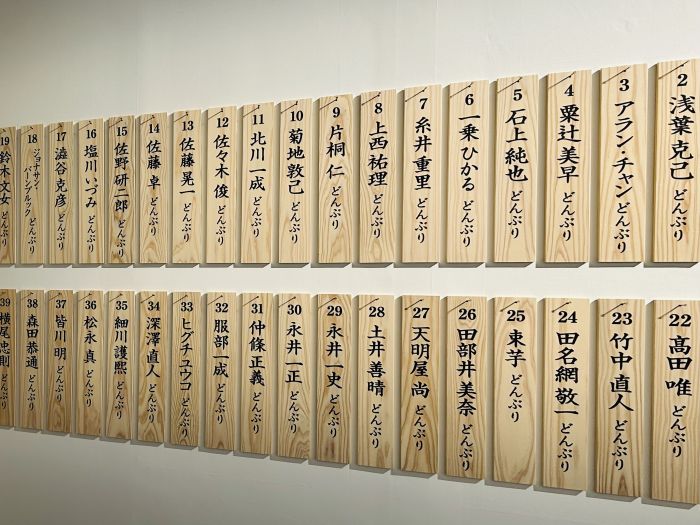 2 浅葉克己どんぶり
3 アラン・チャンどんぶり
4 粟辻美早どんぶり
5 石上純也どんぶり
6 一乗ひかるどんぶり
7 糸井重里どんぶり
8 上西祐理どんぶり
9 片桐仁どんぶり
10 菊地敦己どんぶり
11 北川一成どんぶり
12 佐々木俊どんぶり
13 佐藤晃一どんぶり
14 佐藤卓どんぶり
15 佐野研二郎どんぶり
16 塩川いづみどんぶり
17 澁谷克彦どんぶり
18 ジョナサン・バーンブルックどんぶり
19 鈴木文女どんぶり
22 髙田唯どんぶり
23 竹中直人どんぶり
24 田名網敬一どんぶり
25 束芋どんぶり
26 田部井美奈どんぶり
27 天明屋尚どんぶり
28 土井善晴どんぶり
29 永井一史どんぶり
30 永井一正どんぶり
31 仲條正義どんぶり
32 服部一成どんぶり
33 ヒグチユウコどんぶり
34 深澤直人どんぶり
35 細川護熙どんぶり
36 松永真どんぶり
37 皆川明どんぶり
38 森田恭通どんぶり
39 横尾忠則どんぶり